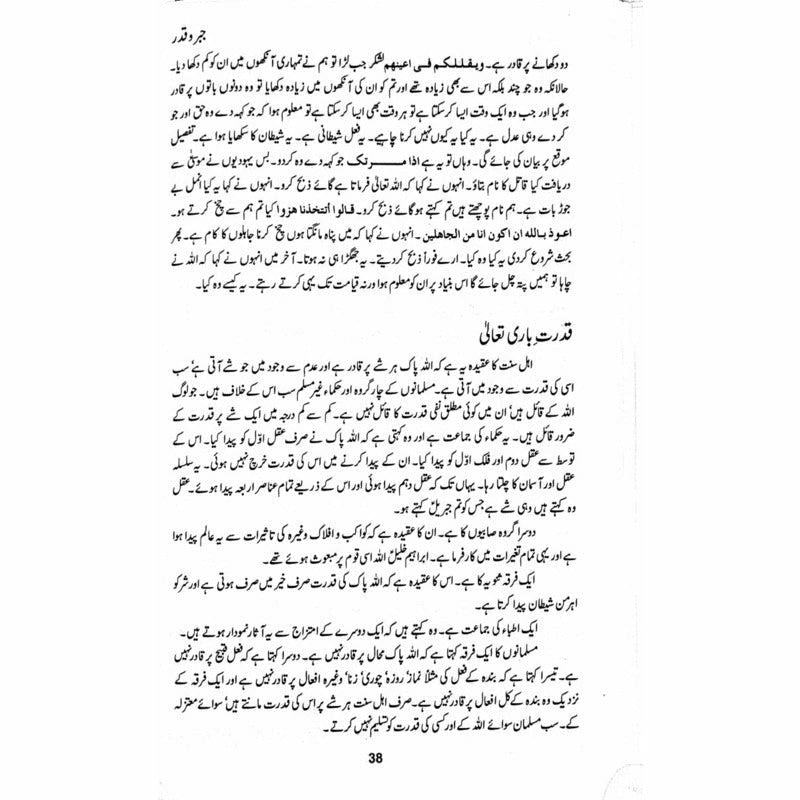 جبر و قدر
دو دکھانے پر قادر ہے۔ ویقللکم فی اعینھم لشکر جب لڑا تو ہم نے تمہاری آنکھوں میں ان کو کم دکھا دیا۔
حالانکہ وہ جو چند بلکہ اس سے بھی زیادہ تھے اور تم کو ان کی آنکھوں میں زیادہ دکھایا تو وہ دونوں باتوں پر قادر
ہوگیا اور جب وہ ایک وقت ایسا کر سکتا ہے تو ہر وقت بھی ایسا کر سکتا ہے تو معلوم ہوا کہ جو کہہ دے وہ حق اور جو
کر دے وہی عدل ہے۔ یہ کیا یہ کیوں نہیں کرنا چاہیے۔ یہ فعل شیطانی ہے۔ یہ شیطان کا سکھایا ہوا ہے۔ تفصیل
موقع پر بیان کی جائے گی۔ وہاں تو یہ ہے اذا مرتک جو کہہ دے وہ کردو۔ بس یہودیوں نے موسیٰؑ سے
دریافت کیا قاتل کا نام بتاؤ۔ انہوں نے کہا کہ اللہ تعالیٰ فرماتا ہے گائے ذبح کرو۔ انہوں نے کہا یہ کیا انمل بے
جوڑ بات ہے۔ ہم نام پوچھتے ہیں تم کہتے ہو گائے ذبح کرو۔ قالوا أتتخذنا هزوا کیا تم ہم سے چخ کرتے ہو۔
اعوذ باللہ ان اکون انا من الجاهلین ۔ انہوں نے کہا کہ میں پناہ مانگتا ہوں چخ کرنا جاہلوں کا کام ہے۔ پھر
بحث شروع کردی یہ کیا وہ کیا۔ ارے فوراً ذبح کر دیتے۔ یہ جھگڑا ہی نہ ہوتا۔ آخر میں انہوں نے کہا کہ اللہ نے
چاہا تو ہمیں پتہ چل جائے گا اس بنیاد پر ان کو معلوم ہوا ورنہ قیامت تک یہی کرتے رہتے ۔ یہ کیسے وہ کیا۔
قدرتِ باری تعالیٰ
اہل سنت کا عقیدہ یہ ہے کہ اللہ پاک ہر شے پر قادر ہے اور عدم سے وجود میں جو شے آتی ہے‘ سب
اسی کی قدرت سے وجود میں آتی ہے۔ مسلمانوں کے چار گروہ اور حکماء غیر مسلم سب اس کے خلاف ہیں۔ جو لوگ
اللہ کے قائل ہیں‘ ان میں کوئی مطلق نفی قدرت کا قائل نہیں ہے۔ کم سے کم درجہ میں ایک شے پر قدرت کے
ضرور قائل ہیں۔ یہ حکماء کی جماعت ہے اور وہ کہتی ہے کہ اللہ پاک نے صرف عقل اوّل کو پیدا کیا۔ اس کے
توسط سے عقل دوم اور فلک اوّل کو پیدا کیا۔ ان کے پیدا کرنے میں اس کی قدرت خرچ نہیں ہوئی۔ یہ سلسلہ
عقل اور آسمان کا چلتا رہا۔ یہاں تک کہ عقل دہم پیدا ہوئی اور اس کے ذریعے تمام عناصر اربعہ پیدا ہوئے۔ عقل
وہ کہتے ہیں وہی شے ہے جس کو تم جبریلؑ کہتے ہو۔
دوسرا گروہ صابیوں کا ہے۔ ان کا عقیدہ ہے کہ کواکب و افلاک وغیرہ کی تاثیرات سے یہ عالم پیدا ہوا
ہے اور یہی تمام تغیرات میں کارفرما ہے۔ ابراہیم خلیلؑ اللہ اسی قوم پر مبعوث ہوئے تھے۔
ایک فرقہ ثنویہ کا ہے۔ اس کا عقیدہ ہے کہ اللہ پاک کی قدرت صرف خیر میں صرف ہوتی ہے اور شر کو
اہرمن شیطان پیدا کرتا ہے۔
ایک اطباء کی جماعت ہے۔ وہ کہتے ہیں کہ ایک دوسرے کے امتزاج سے یہ آثار نمودار ہوتے ہیں۔
مسلمانوں کا ایک فرقہ کہتا ہے کہ اللہ پاک محال پر قادر نہیں ہے۔ دوسرا کہتا ہے کہ فعل قبیح پر قادر نہیں
ہے۔ تیسرا کہتا ہے کہ بندہ کے فعل کی مثلاً نماز‘ روزہ‘ چوری‘ زنا‘ وغیرہ افعال پر قادر نہیں ہے اور ایک فرقہ کے
نزدیک وہ بندہ کے کل افعال پر قادر نہیں ہے۔ صرف اہل سنت ہر شے پر اس کی قدرت مانتے ہیں‘ سوائے معتزلہ
کے۔ سب مسلمان سوائے اللہ کے اور کسی کی قدرت کو تسلیم نہیں کرتے۔
38